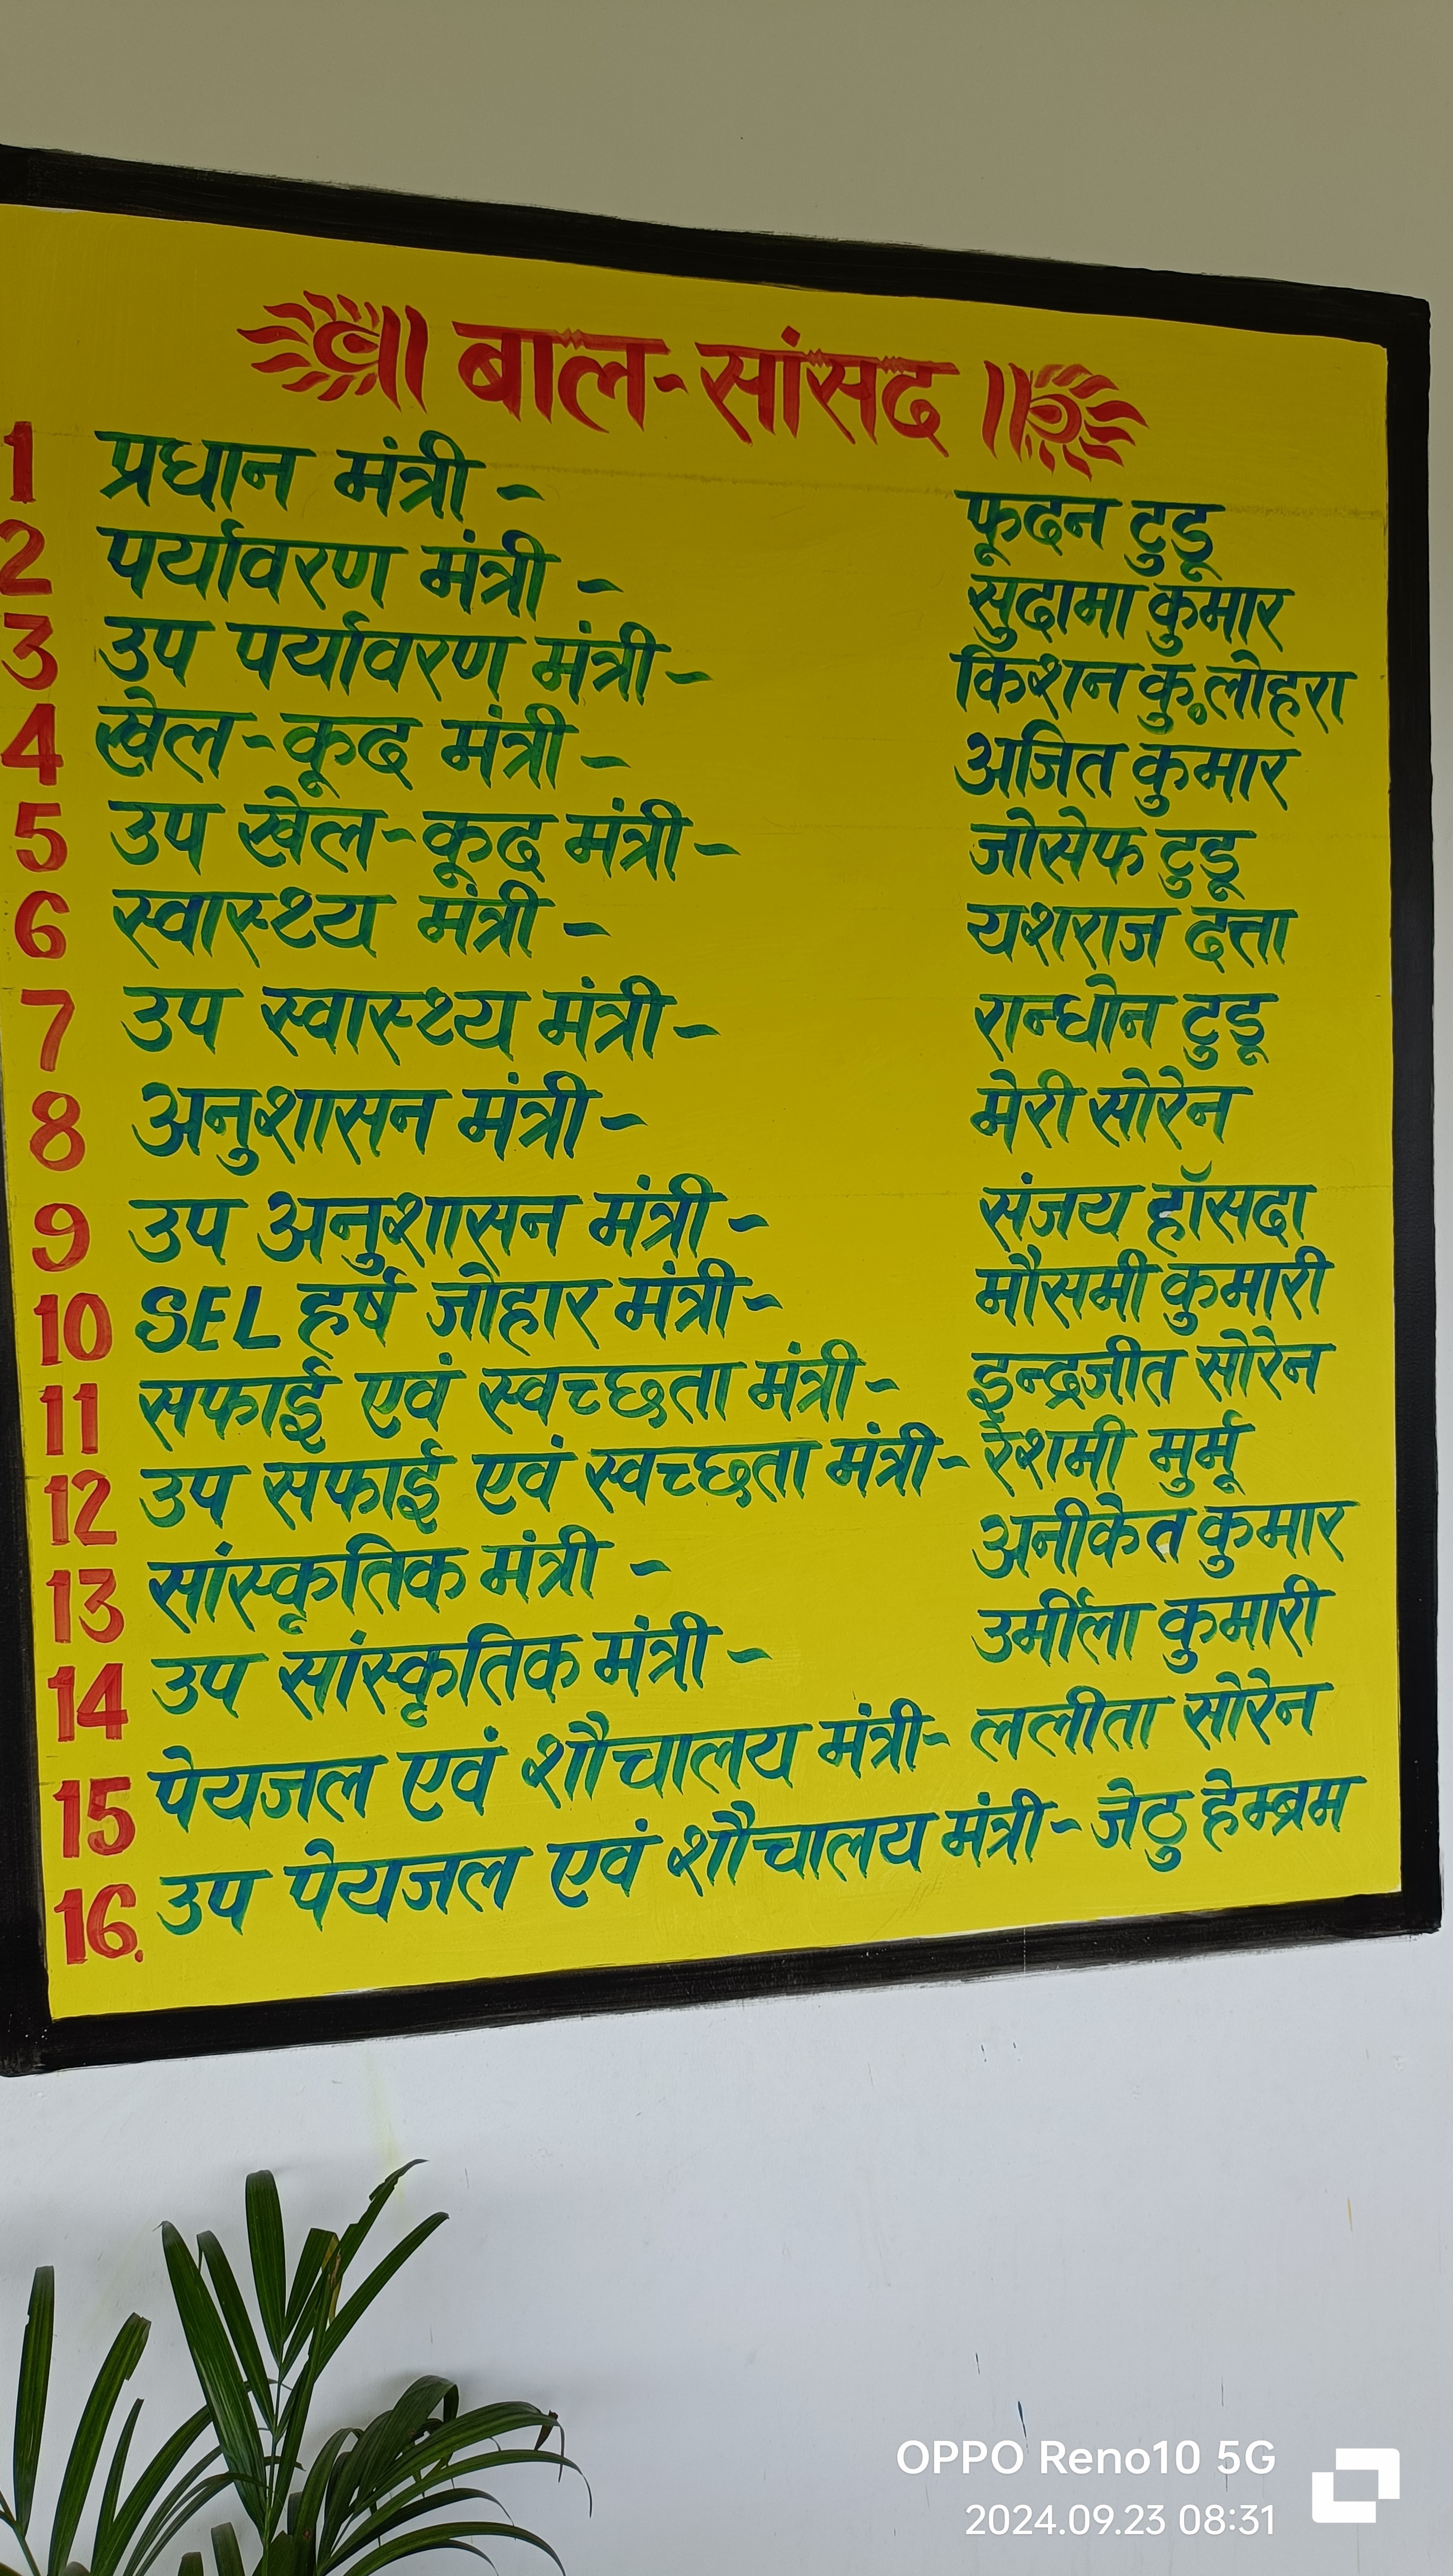 ॥ बाल-सांसद ॥
1 प्रधान मंत्री - फूदन टुडू
2 पर्यावरण मंत्री - सुदामा कुमार
3 उप पर्यावरण मंत्री - किशन कु॰ लोहरा
4 खेल-कूद मंत्री - अजित कुमार
5 उप खेल-कूद मंत्री - जोसेफ टुडू
6 स्वास्थ्य मंत्री - यशराज दत्ता
7 उप स्वास्थ्य मंत्री - रान्धोन टुडू
8 अनुशासन मंत्री - मेरी सोरेन
9 उप अनुशासन मंत्री - संजय हाँसदा
10 SEL हर्ष जोहार मंत्री - मौसमी कुमारी
11 सफाई एवं स्वच्छता मंत्री - इन्द्रजीत सोरेन
12 उप सफाई एवं स्वच्छता मंत्री - रेशमी मुर्मू
13 सांस्कृतिक मंत्री - अनीकेत कुमार
14 उप सांस्कृतिक मंत्री - उर्मीला कुमारी
15 पेयजल एवं शौचालय मंत्री - ललीता सोरेन
16. उप पेयजल एवं शौचालय मंत्री - जेठु हेम्ब्रम
OPPO Reno10 5G
2024.09.23 08:31